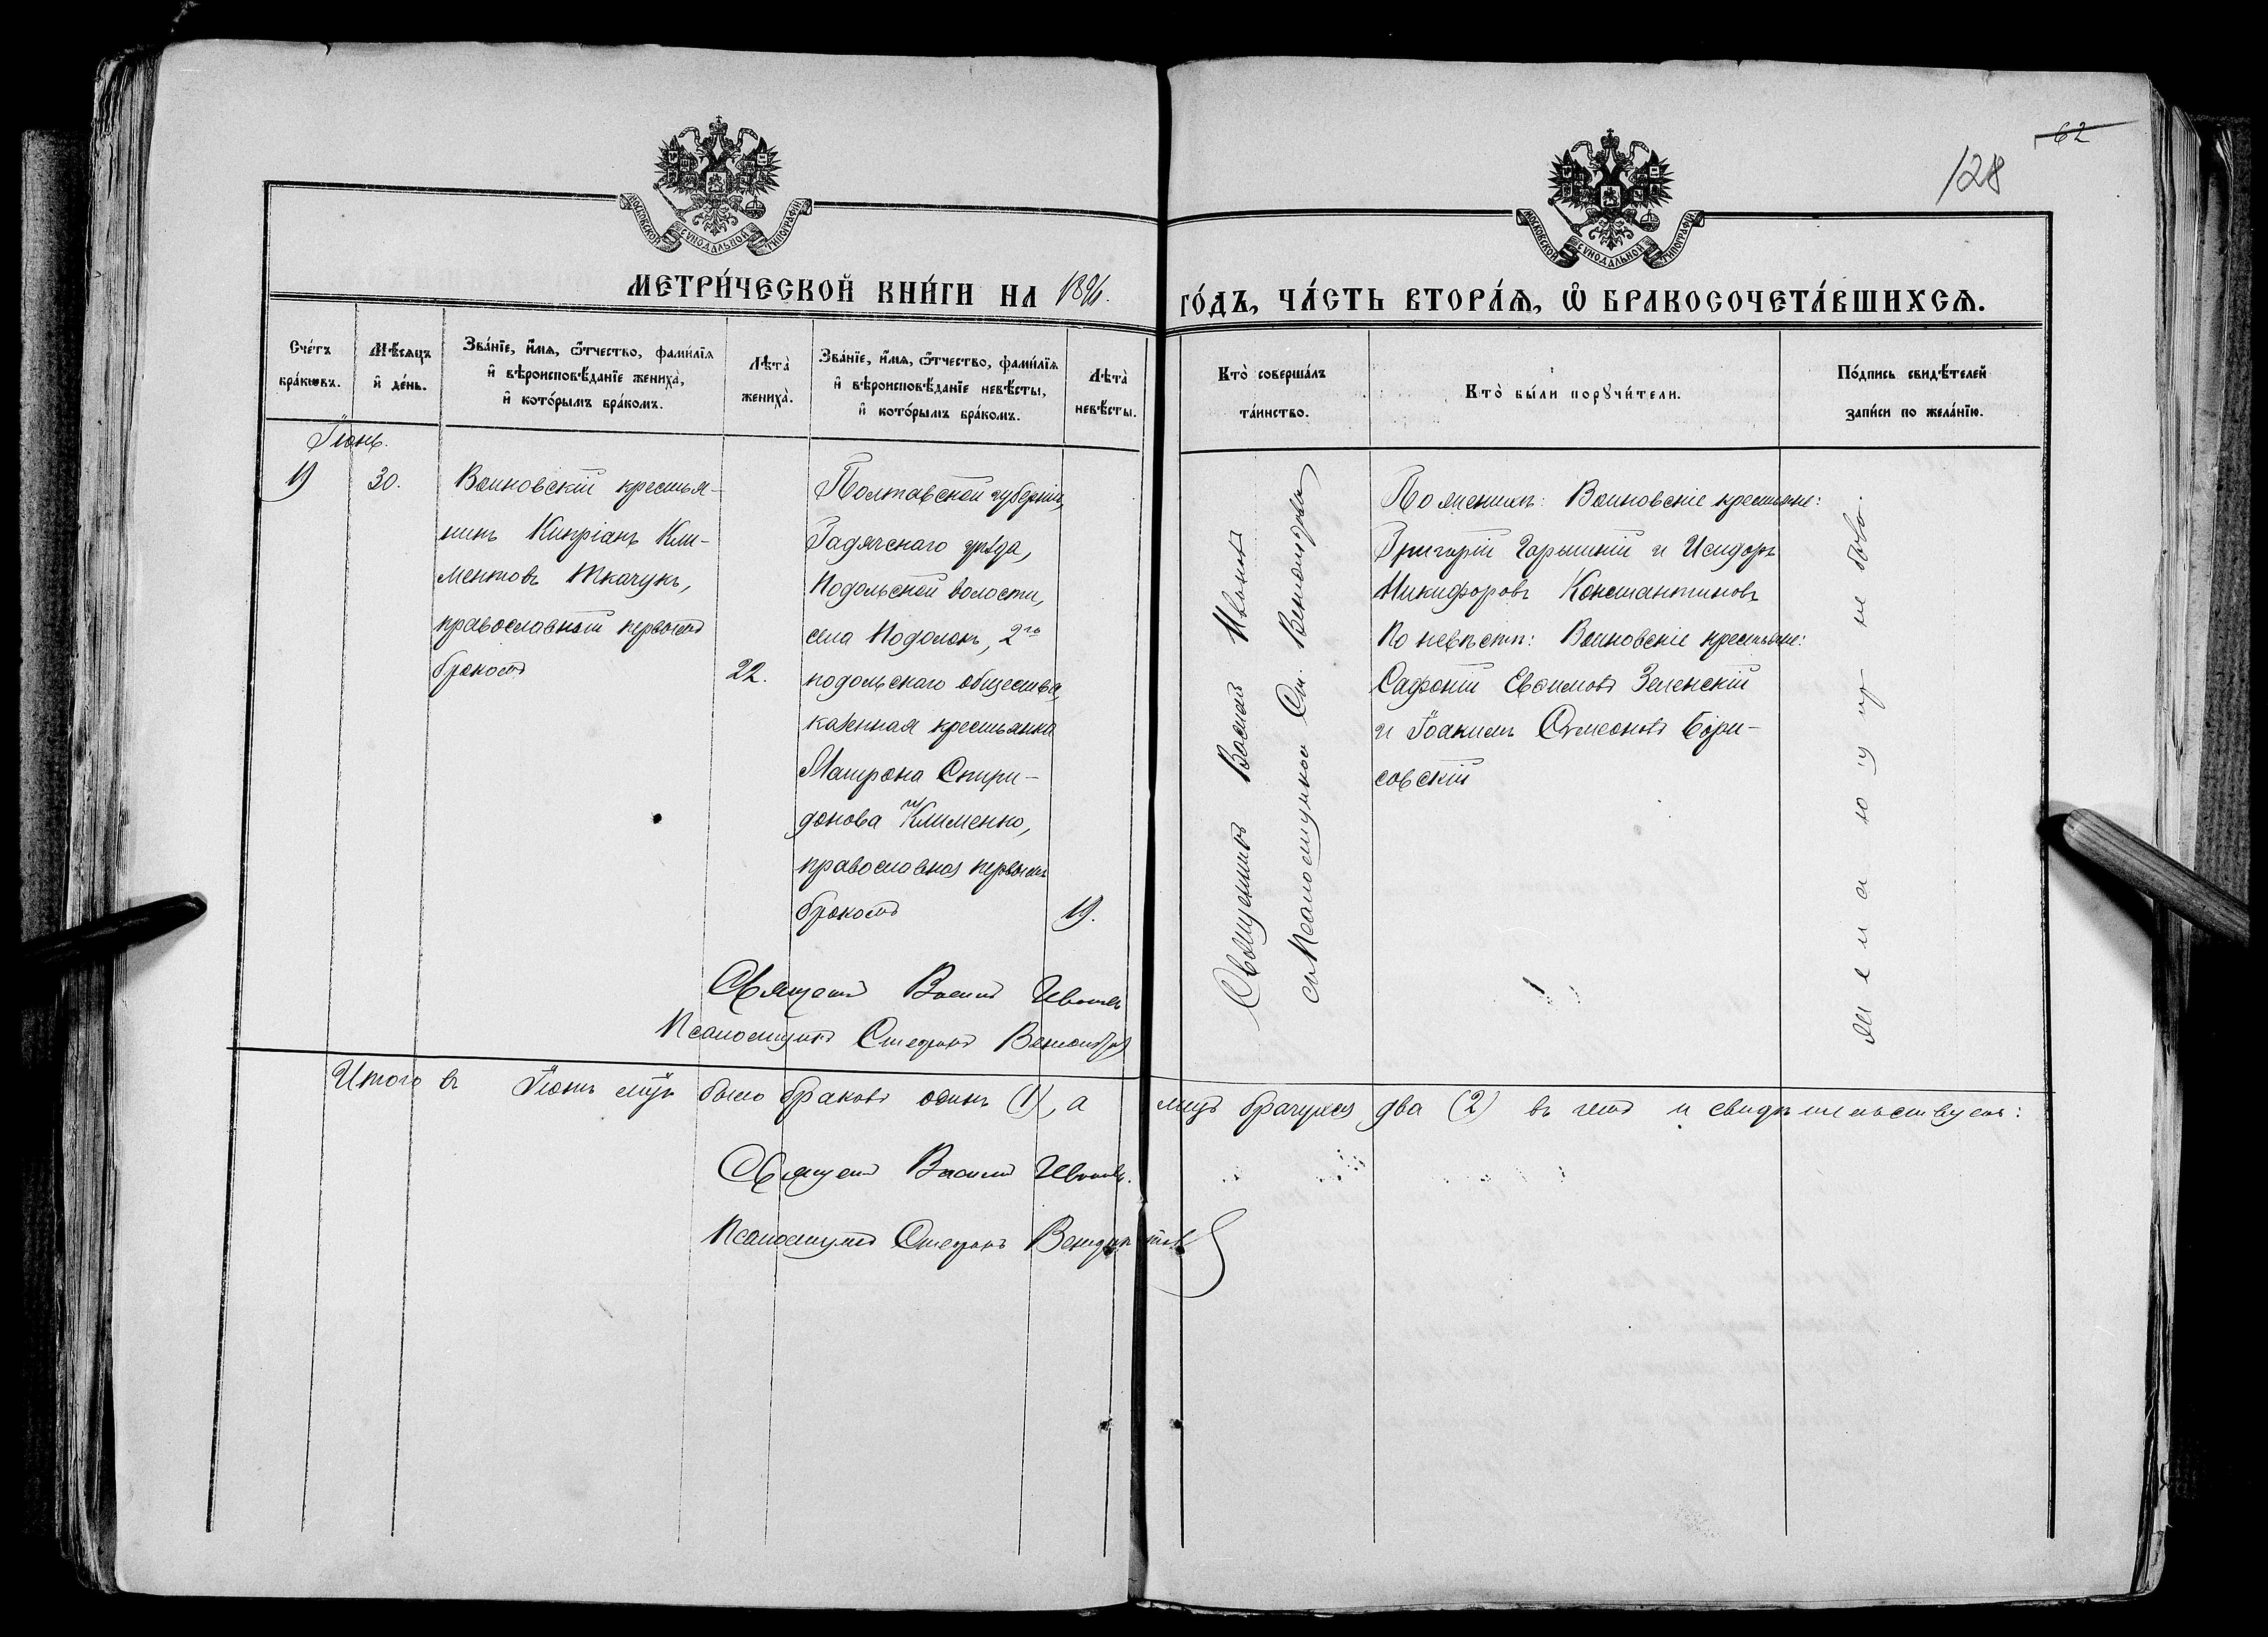 62
128
МОСКОВСКОЙ СУНОДАЛЬНОЙ ТИПОГРАФІИ
МОСКОВСКОЙ СУНОДАЛЬНОЙ ТИПОГРАФІИ
МЕТРИ́ЧЕСКОЙ КНИ́ГИ НА 1896. ГО́ДЪ, ЧА́СТЬ ВТОРА́Ѧ, Ѽ БРАКОСОЧЕТА́ВШИХСѦ.
Сче́тъ бра́кѡвъ.
Мѣ́сѧцъ и҆ де́нь.
Зва́нїе, и҆́мѧ, ѻ҆́тчество, фами́лїѧ
и҆ вѣроисповѣ́данїе жениха̀,
и҆ кото́рымъ бра́комъ.
Лѣта̀ жениха̀.
Зва́нїе, и҆́мѧ, ѻ҆́тчество, фами́лїѧ
и҆ вѣроисповѣ́данїе невѣ́сты,
и҆ кото́рымъ бра́комъ.
Лѣта̀ невѣ́сты.
Кто̀ соверша́лъ та́инство.
Кто̀ бы́ли порꙋчи́тели.
По́дпись свидѣ́телей
за́писи по жела́нїю.
Іюнь.
19
30.
Воиновскій крестья-
нинъ Кипріанъ Кли-
ментовъ Ткачукъ,
православный первымъ
бракомъ
22.
Полтавской губерніи,
Гадячскаго уѣзда,
Подольской волости,
села Подолокъ, 2го
подольскаго общества,
казенная крестьянка
Матрона Спири-
донова Клименко,
православная первымъ
бракомъ
19.
Священникъ Василій Ивановъ
съ Псаломщикомъ Ст.
По женихѣ: Воиновскіе крестьяне:
Григорій Гарышкій и Исидоръ
Никифоровъ Константиновъ
По невѣстѣ: Воиновскіе крестьяне:
Сафоній Евфимовъ Зеленскій
и Іоакимъ Сѵмеоновъ Бори-
совскій
желающихъ не было.
Священникъ Василій Ивановъ
Псаломщикъ Стефанъ
Итого въ Іюнѣ мцѣ было браковъ одинъ (1), а лицъ брачущихся два (2) въ чемъ и свидѣтельствуемъ:
Священникъ Василій Ивановъ.
Псаломщикъ Стефанъ